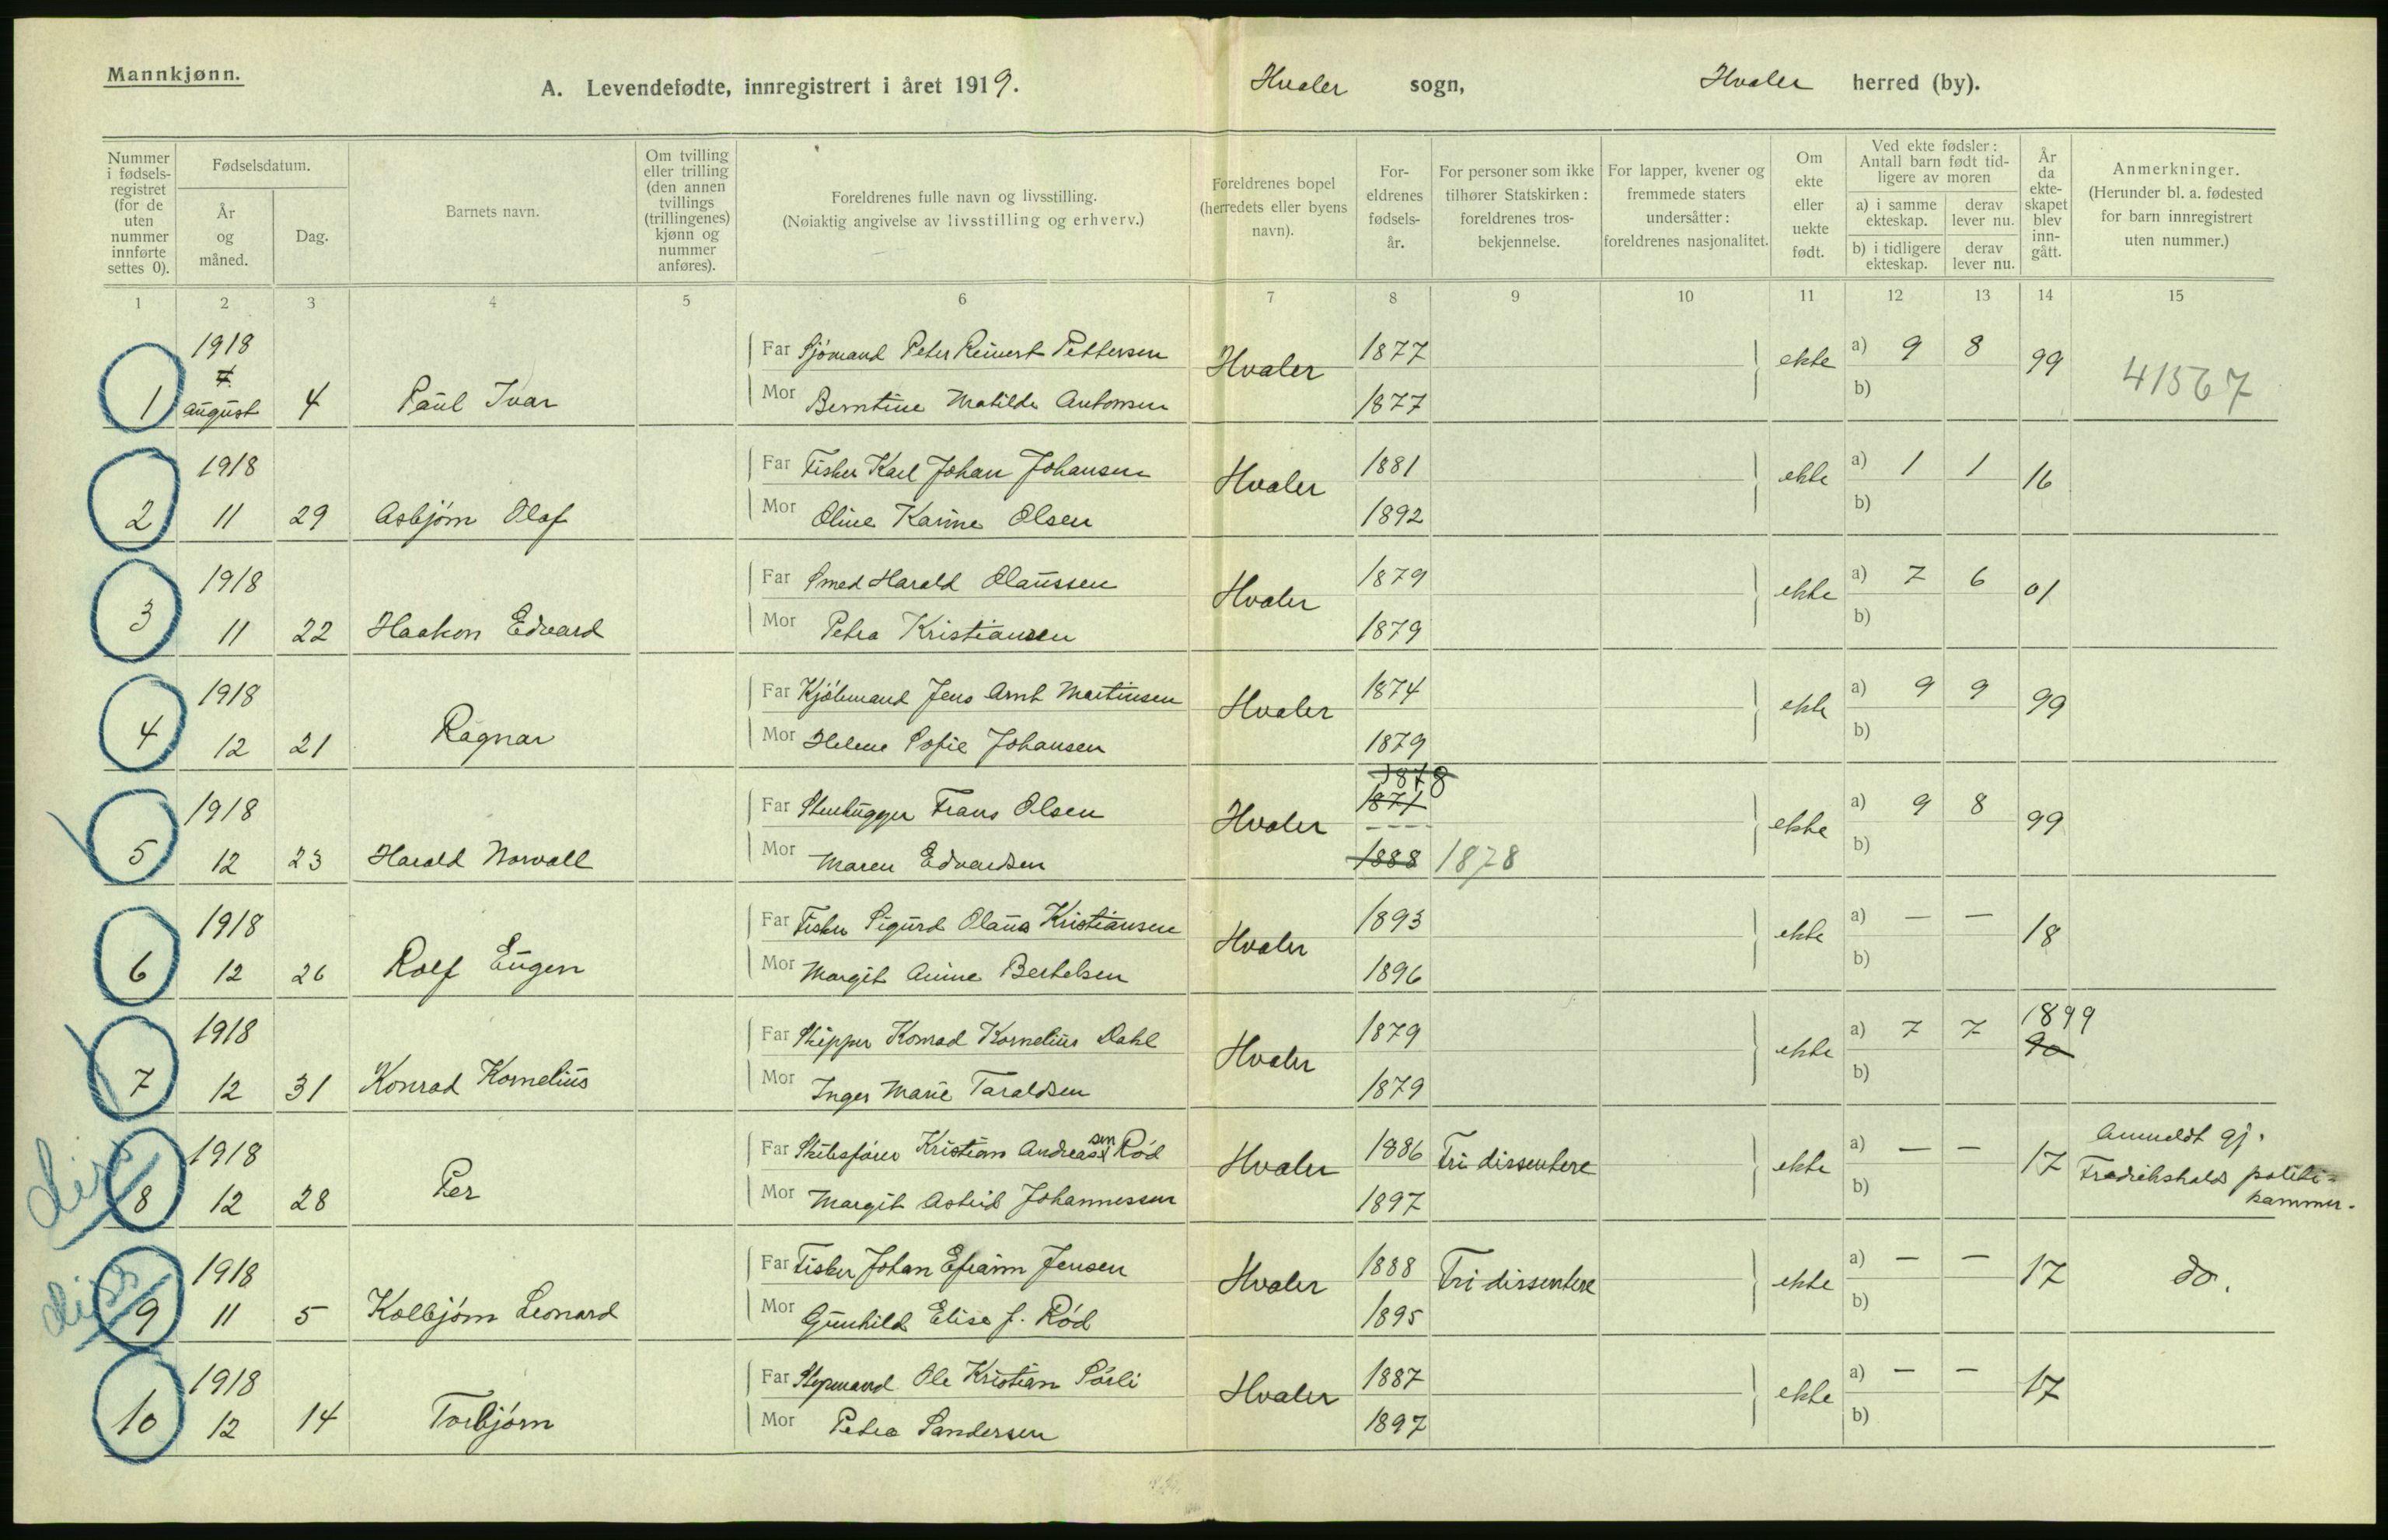 Mannkjønn.
A. Levendefødte, innregistrert i året 1919.
Hvaler sogn, Hvaler herred (by).
Nummer i fødsels-registret (for de uten nummer innførte settes 0).
Fødselsdatum.
År og måned.
Dag.
Barnets navn.
Om tvilling eller trilling (den annen tvillings (trillingenes) kjønn og nummer anføres).
Foreldrenes fulle navn og livsstilling.
(Nøiaktig angivelse av livsstilling og erhverv.)
Foreldrenes bopel (herredets eller byens navn).
For-eldrenes fødsels-år.
For personer som ikke tilhører Statskirken: foreldrenes tros-bekjennelse.
For lapper, kvener og fremmede staters undersåtter: foreldrenes nasjonalitet.
Om ekte eller uekte født.
Ved ekte fødsler: Antall barn født tid-ligere av moren
a) i samme ekteskap. derav lever nu.
b) i tidligere ekteskap. derav lever nu.
År da ekte-skapet blev inn-gått.
Anmerkninger.
(Herunder bl. a. fødested for barn innregistrert uten nummer.)
1 2 3 4 5 6 7 8 9 10 11 12 13 14 15
1918 Far Sjömand Peter Reinert Pettersen Hvaler 1877 ekte a) 9 8 99 41567
1 7 august 4 Paul Ivar Mor Berntine Matilde Antonsen 1877 b)
1918 Far Fisker Karl Johan Johansen Hvaler 1881 ekte a) 1 1 16
2 11 29 Asbjörn Olaf Mor Oline Karine Olsen 1892 b)
1918 Far Smed Harald Olaussen Hvaler 1879 ekte a) 7 6 01
3 11 22 Haakon Edvard Mor Petra Kristiansen 1879 b)
1918 Far Kjöbmand Jens Arnt Martinsen Hvaler 1874 ekte a) 9 9 99
4 12 21 Ragnar Mor Helene Sofie Johansen 1879 b)
1878
1918 Far Stenhugger Frans Olsen Hvaler 1871 ekte a) 9 8 99
5 12 23 Harald Norvall Mor Maren Edvardsen 1888 1878 b)
1918 Far Fisker Sigurd Olaus Kristiansen Hvaler 1893 ekte a) — — 18
6 12 26 Rolf Eugen Mor Margit Anine Bertelsen 1896 b)
1918 Far Skipper Konrad Kornelius Dahl Hvaler 1879 ekte a) 7 7 1899 90
7 12 31 Konrad Kornelius Mor Inger Marie Taraldsen 1879 b)
diss 1918 Far Skibsförer Kristian Andreassen Röd Hvaler 1886 Fri dissentere ekte a) — — 17 Anmeldt gj. Fredrikshalds politi-kammer.
8 12 28 Per Mor Margit Astrid Johannessen 1897 b)
diss 1918 Far Fisker Johan Efraim Jensen Hvaler 1888 Fri dissentere ekte a) — — 17 do.
9 11 5 Kolbjörn Leonard Mor Gunhild Elise f. Röd 1895 b)
1918 Far Styrmand Ole Kristian Sörli Hvaler 1887 ekte a) — — 17
10 12 14 Torbjörn Mor Petra Sandersen 1897 b)